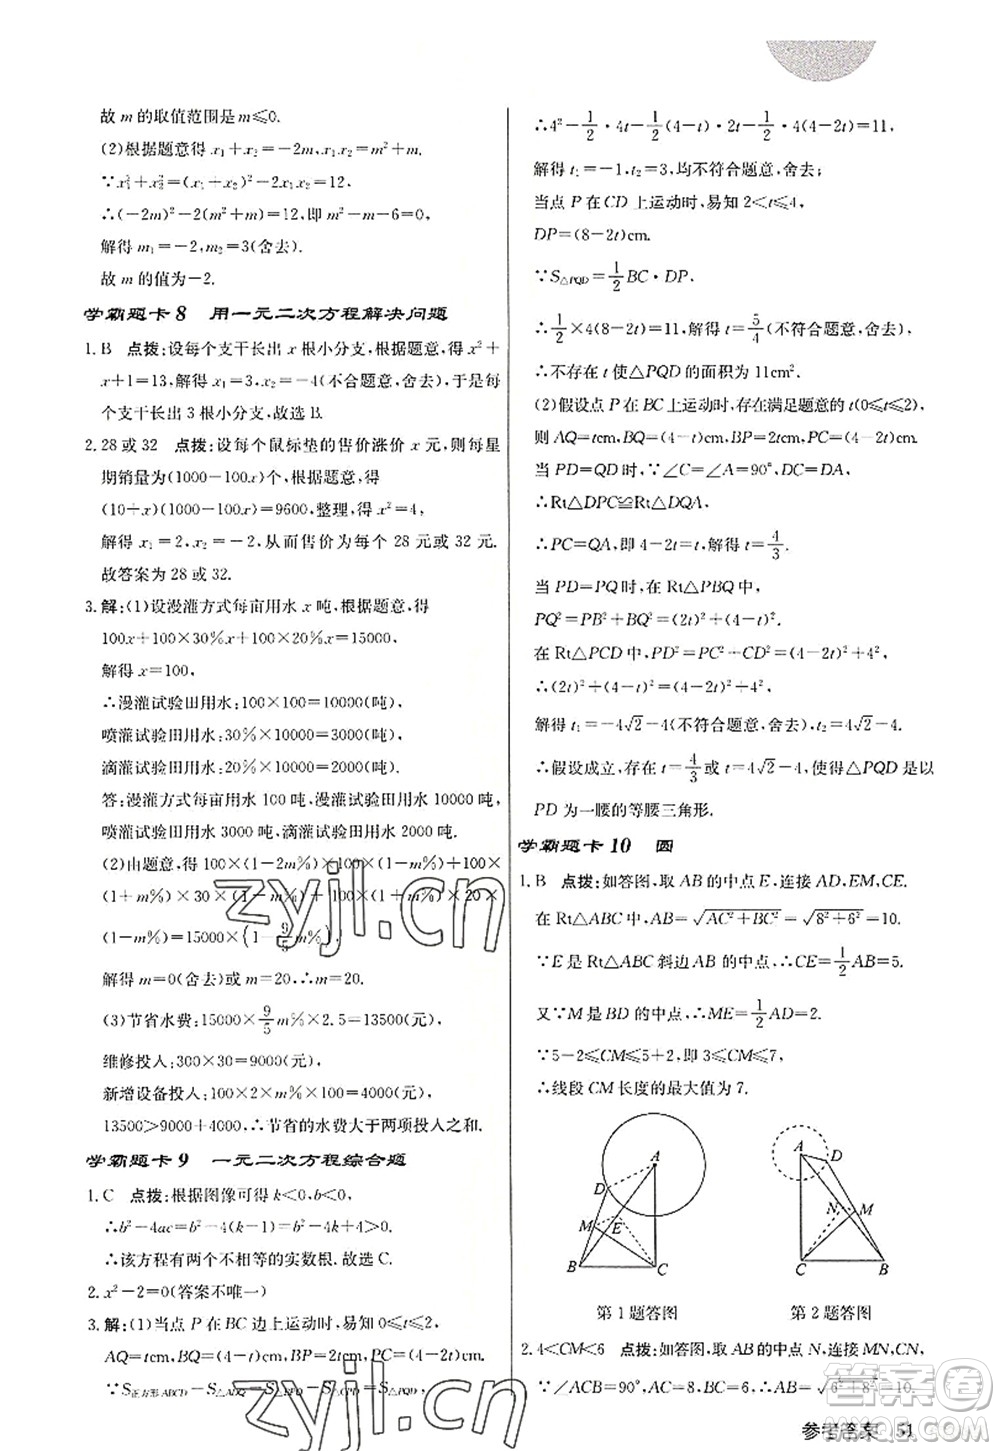 故 m 的取值范围是 m≤0.
(2)根据题意得 x₁+x₂=-2m, x₁x₂=m²+m.
∵x₁²+x₂²=(x₁+x₂)²-2x₁x₂=12,
∴(-2m)²-2(m²+m)=12,即 m²-m-6=0,
解得 m₁=-2,m₂=3(舍去).
故 m 的值为-2.
学霸题卡 8 用一元二次方程解决问题
1.B 点拨:设每个支干长出 x 根小分支,根据题意,得 x²+
x+1=13,解得 x₁=3,x₂=-4(不合题意,舍去),于是每
个支干长出 3 根小分支,故选 B.
2.28 或 32 点拨:设每个鼠标垫的售价涨价 x 元,则每星
期销量为(1000-100x)个,根据题意,得
(10+x)(1000-100x)=9600,整理,得 x²=4,
解得 x₁=2,x₂=-2,从而售价为每个 28 元或 32 元.
故答案为 28 或 32.
3.解:(1)设漫灌方式每亩用水 x 吨,根据题意,得
100x+100×30%x+100×20%x=15000,
解得 x=100,
∴漫灌试验田用水:100×100=10000(吨),
喷灌试验田用水:30%×10000=3000(吨),
滴灌试验田用水:20%×10000=2000(吨).
答:漫灌方式每亩用水 100 吨,漫灌试验田用水 10000 吨,
喷灌试验田用水 3000 吨,滴灌试验田用水 2000 吨.
(2)由题意,得 100×(1-2m%)×100×(1-m%)+100×
(1+m%)×30×(1-m%)+100×(1+m%)×20×
(1-m%)=15000×(1-9/5m%),
解得 m=0(舍去)或 m=20,∴m=20.
(3)节省水费:15000×9/5m%×2.5=13500(元),
维修投入:300×30=9000(元),
新增设备投入:100×2×m%×100=4000(元),
13500>9000+4000,∴节省的水费大于两项投入之和.
学霸题卡 9 一元二次方程综合题
1.C 点拨:根据图像可得 k<0,b<0,
∴b²-4ac=(-2)²-4(k-1)=-4k+8>0,
∴该方程有两个不相等的实数根.故选 C.
2.x²-2=0(答案不唯一)
3.解:(1)当点 P 在 BC 边上运动时,易知 0≤t≤2,
AQ=tcm,BQ=(4-t)cm,BP=2tcm,CP=(4-2t)cm.
∵S正方形ABCD-S△ADQ-S△BPQ-S△CPD=S△PQD,
∴4²-1/2·4t-1/2(4-t)·2t-1/2·4(4-2t)=11,
解得 t₁=-1,t₂=3,均不符合题意,舍去;
当点 P 在 CD 上运动时,易知 2<t≤4,
DP=(8-2t)cm.
∵S△PQD=1/2BC·DP,
∴1/2×4(8-2t)=11,解得 t=5/4(不符合题意,舍去),
∴不存在 t 使△PQD 的面积为 11cm².
(2)假设点 P 在 BC 上运动时,存在满足题意的 t(0≤t≤2),
则 AQ=tcm,BQ=(4-t)cm,BP=2tcm,CP=(4-2t)cm.
当 PD=QD 时,∵∠C=∠A=90°,DC=DA,
∴Rt△DPC≌Rt△DQA,
∴PC=QA,即 4-2t=t,∴t=4/3.
当 PD=PQ 时,在 Rt△PBQ 中,
PQ²=BP²+BQ²=(2t)²+(4-t)²,
在 Rt△PCD 中,PD²=PC²+CD²=(4-2t)²+4²,
∴(2t)²+(4-t)²=(4-2t)²+4²,
解得 t₁=-4√2-4(不符合题意,舍去),t₂=4√2-4.
∴假设成立,存在 t=4/3 或 t=4√2-4,使得△PQD 是以
PD 为一腰的等腰三角形.
学霸题卡 10 圆
1.B 点拨:如答图,取 AB 的中点 E,连接 AD,EM,CE.
在 Rt△ABC 中,AB=√(AC²+BC²)=√(8²+6²)=10.
∵E 是 Rt△ABC 斜边 AB 的中点,∴CE=1/2AB=5.
又∵M 是 BD 的中点,∴ME=1/2AD=2.
∵5-2≤CM≤5+2,即 3≤CM≤7,
∴线段 CM 长度的最大值为 7.
A
D
M
E
B
C
第 1 题答图
A
D
N
M
C
B
第 2 题答图
2.4<CM<6 点拨:如答图,取 AB 的中点 N,连接 MN,CN,
∵∠ACB=90°,AC=8,BC=6,∴AB=√(6²+8²)=10.
参考答案 51
zyjl.cn
zyjl.cn
答案圈